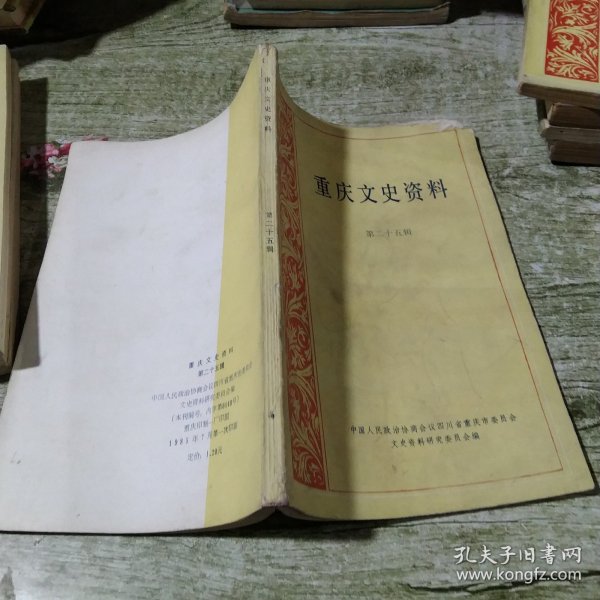 重庆文史资料
第二十五辑
中国人民政治协商会议四川省重庆市委员会
文史资料研究委员会编
重庆文史资料
第二十五辑
重庆文史资料
第二十五辑
中国人民政治协商会议四川省重庆市委员会
文史资料研究委员会编
重庆印制一厂印刷
定价：1.20元
孔夫子旧书网
www.kongfz.com